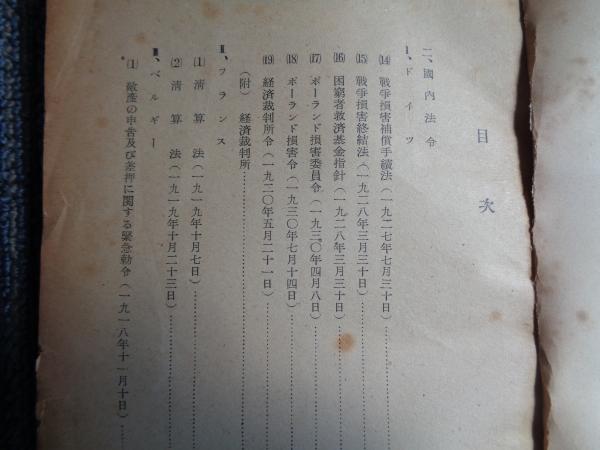 目次
二、國內法令
Ⅰ、ドイツ
⒁ 戰爭損害補償手續法（一九二七年七月三十日）
⒂ 戰爭損害終結法（一九二八年三月三十日）
⒃ 困窮者救済基金指針（一九二八年三月三十日）
⒄ ポーランド損害委員令（一九三〇年四月八日）
⒅ ポーランド損害令（一九三〇年七月十四日）
⒆ 経済裁判所令（一九二〇年五月二十一日）
（附） 経済裁判所
Ⅱ、フランス
⑴ 淸算法（一九一九年十月七日）
⑵ 淸算法（一九一九年十月二十三日）
Ⅲ、ベルギー
⑴ 敵產の申吿及び差押に関する緊急勅令（一九一八年十一月十日）